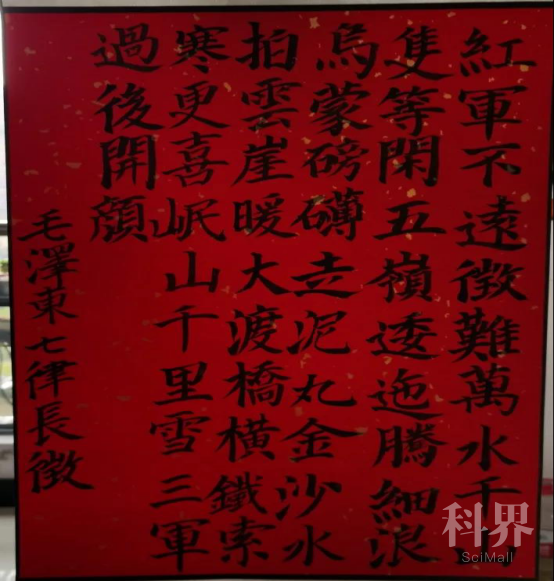 紅軍不遠徵難萬水千山
隻等閑五嶺逶迤騰細浪
烏蒙磅礴走泥丸金沙水
拍雲崖暖大渡橋橫鐵索
寒更喜岷山千里雪三軍
過後開顏
毛澤東七律長徵
科界
SciMall